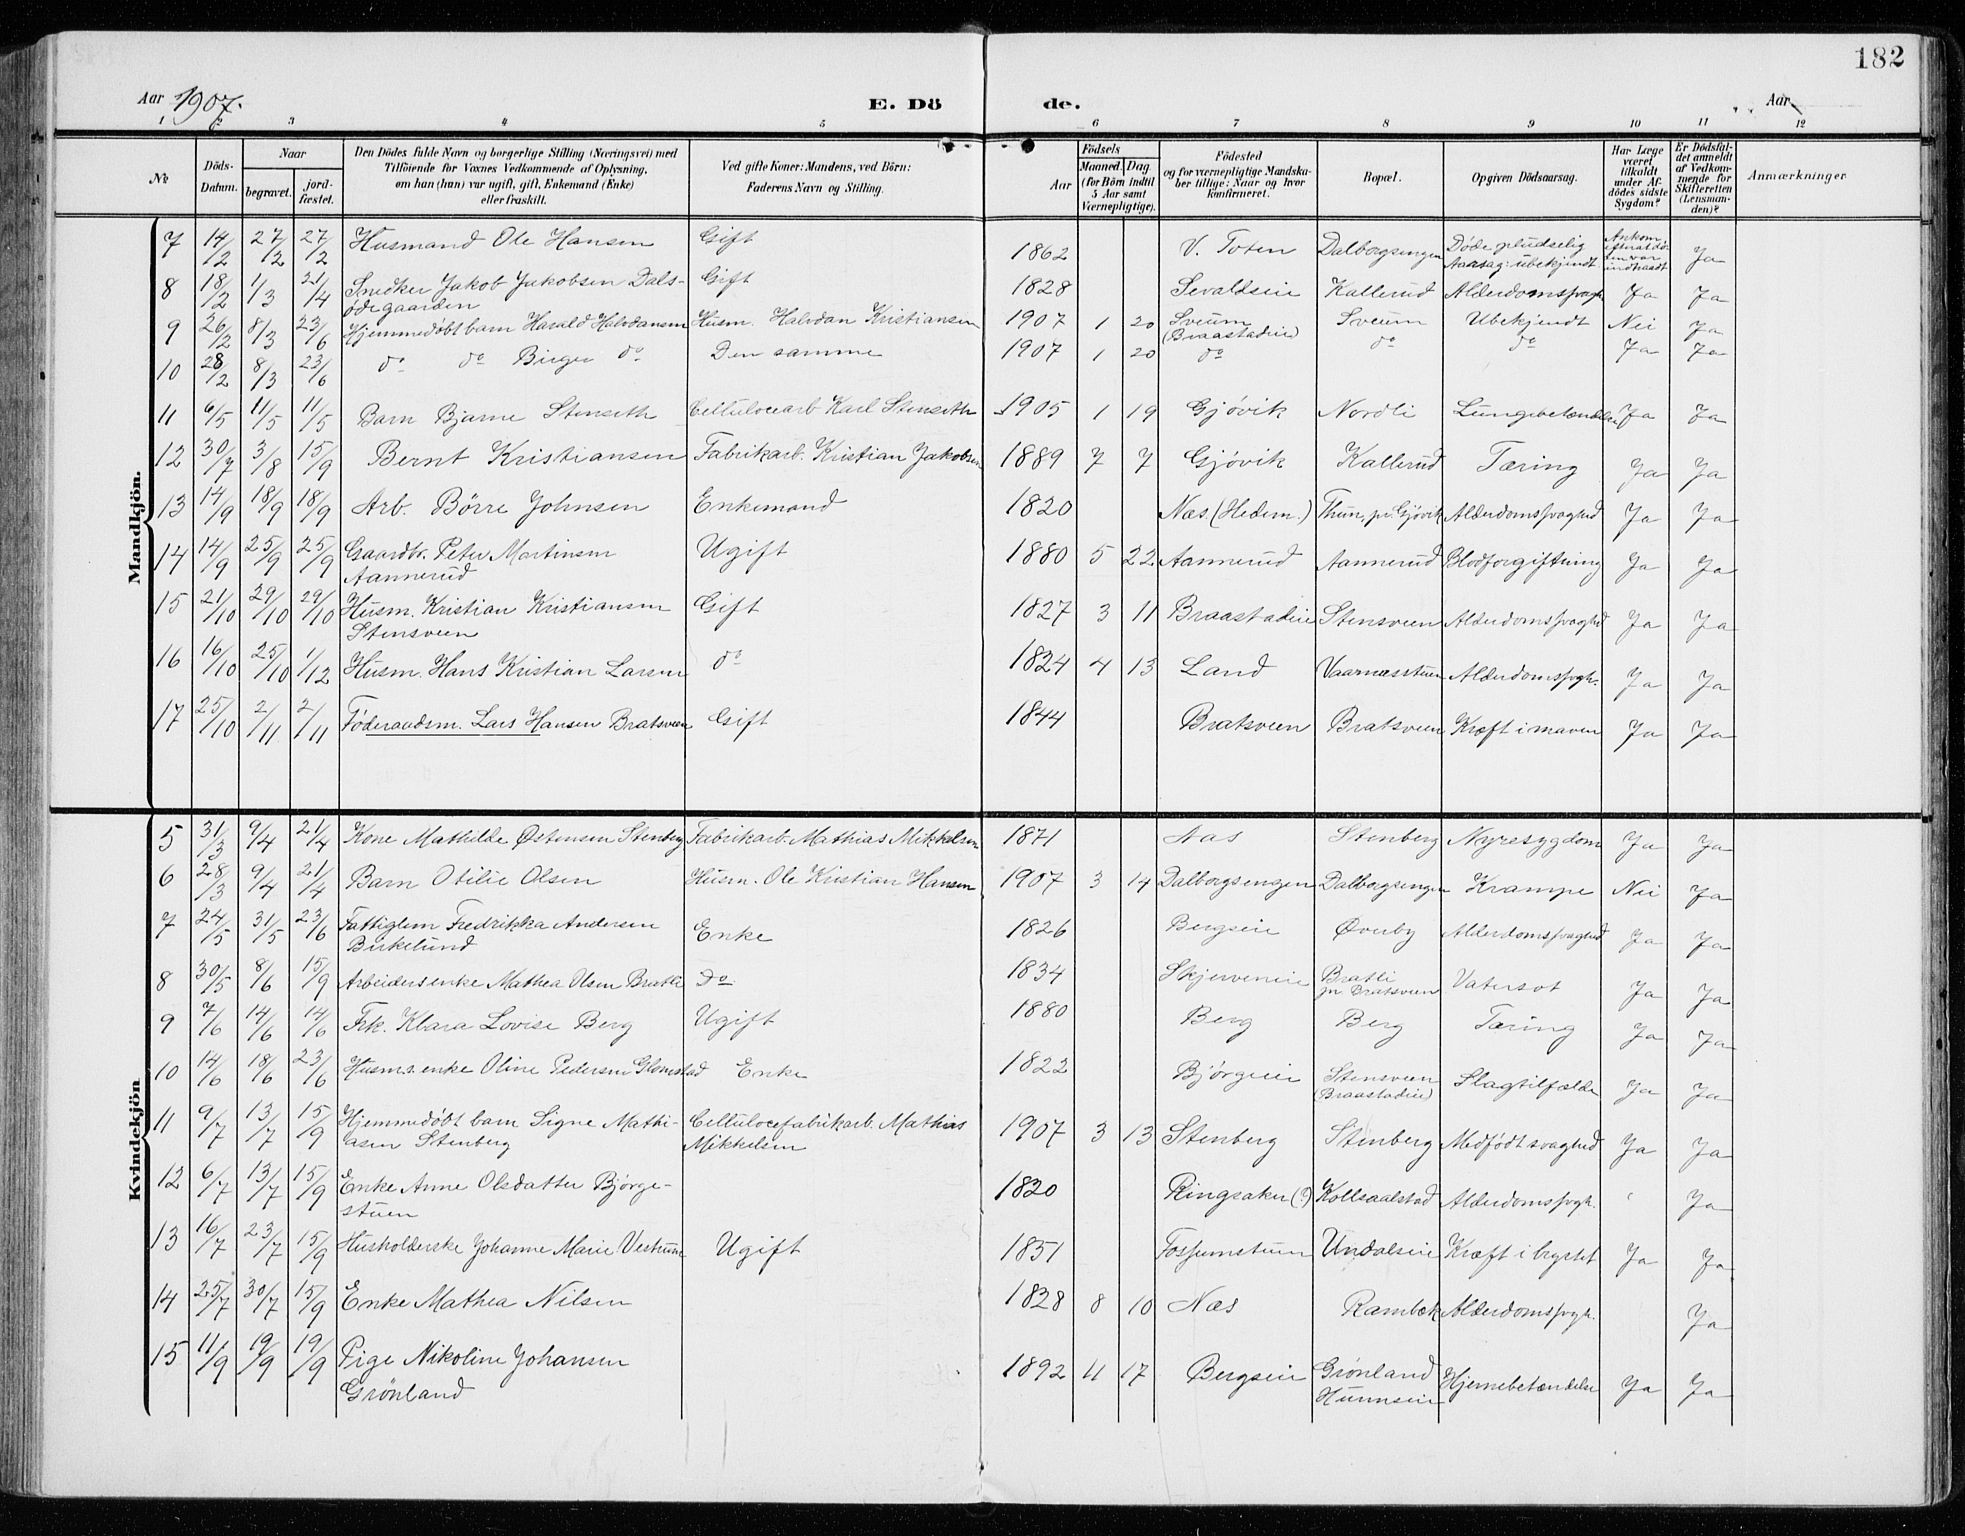 182
Aar 1907. E. Dö de. Aar
1 2 3 4 5 6 7 8 9 10 11 12
№ Döds-Datum. Naar begravet. jordfæstet. Den Dödes fulde Navn og borgerlige Stilling (Næringsvei) med Tilföiende for Voxnes Vedkommende af Oplysning, om han (hun) var ugift, gift, Enkemand (Enke) eller fraskilt. Ved gifte Koner: Mandens, ved Börn: Faderens Navn og Stilling. Födsels Aar Maaned. Dag. (for Börn indtil 5 Aar samt Værnepligtige). Födested og for værnepligtige Mandskaber tillige: Naar og hvor konfirmeret. Bopæl. Opgiven Dödsaarsag. Har Læge været tilkaldt under Afdödes sidste Sygdom? Er Dödsfaldet anmeldt af Vedkommende for Skifteretten (Lensmanden)? Anmærkninger
Mandkjön.
7 14/2 27/2 27/2 Husmand Ole Hansen Gift 1862 V. Toten Dalborgsengen Døde pludselig Aarsag: ubekjendt Ankom efterat døden var indtraadt Ja
8 18/2 1/3 21/4 Snedker Jakob Jakobsen Dals- Gift 1828 Sevaldseie Kallerud Alderdomssvagh Ja Ja
ødegaarden
9 26/2 8/3 23/6 Hjemmedøbt barn Harald Halvdansen Husm. Halvdan Kristiansen 1907 1 20 Sveum (Braastadeie) Sveum Ubekjendt Nei Ja
10 28/2 8/3 23/6 do do Birger do Den samme 1907 1 20 do do do Ja Ja
11 6/5 11/5 11/5 Barn Bjarne Stenseth Cellulocearb Karl Stenseth 1905 1 19 Gjøvik Nordli Lungebetændelse Ja Ja
12 30/7 3/8 15/9 Bernt Kristiansen Fabrikarb. Kristian Jakobsen 1889 7 7 Gjøvik Kallerud Tæring Ja Ja
13 14/9 18/9 18/9 Arb. Børre Johnsen Enkemand 1820 Næs (Hedem.) Thun, pr. Gjøvik Alderdomssvaghed Ja Ja
14 14/9 25/9 25/9 Gaardbr. Peter Martinsen Ugift 1880 5 22 Aannerud Aannerud Blodforgiftning Ja Ja
Aannerud
15 21/10 29/10 29/10 Husm. Kristian Kristiansen Gift 1827 3 11 Braastadeie Stensveen Alderdomssvaghed Ja Ja
Stensveen
16 16/10 25/10 1/12 Husm. Hans Kristian Larsen do 1824 4 13 Land Vaarnæsstuen Alderdomssvgh. Ja Ja
17 25/10 2/11 2/11 Føderaadsm. Lars Hansen Bratsveen Gift 1844 Bratsveen Bratsveen Kræft i maven Ja Ja
Kvindekjön.
5 31/3 9/4 21/4 Kone Mathilde Østensen Stenberg Fabrikarb. Mathias Mikkelsen 1871 Nas Stenberg Nyresygdom Ja Ja
6 28/3 9/4 21/4 Barn Otilie Olsen Husm. Ole Kristian Hansen 1907 3 14 Dalborgsengen Dalborgsengen Krampe Nei Ja
7 24/5 31/5 23/6 Fattiglem Fredrikka Andersen Enke 1826 Bergseie Øverby Alderdomssvaghed Ja Ja
Birkelund
8 30/5 8/6 15/9 Arbeidersenke Mathea Olsen Bratli Do 1834 Skjerveneie Bratli pr Bratsveen Vatersot Ja Ja
9 7/6 14/6 14/6 Frk. Klara Lovise Berg Ugift 1880 Berg Berg Tæring Ja Ja
10 14/6 18/6 23/6 Husms.enke Oline Pedersen Glæmstad Enke 1822 Bjørgeie Stensveen (Braastadeie) Slagtilfælde Ja Ja
11 9/7 13/7 15/9 Hjemmedøbt barn Signe Mathi- Cellulocefabrikarb. Mathias 1907 3 13 Stenberg Stenberg Medfødt svaghed Ja Ja
asen Stenberg Mikkelsen
12 6/7 13/7 15/9 Enke Anne Olsdatter Bjørge- 1820 Ringsaker (?) Kollsaalstad Alderdomssvgh. Ja
stuen
13 16/7 23/7 15/9 Husholderske Johanne Marie Vestrum Ugift 1851 Fossumstuen Undalseie Kræft i brystet Ja Ja
14 25/7 30/7 15/9 Enke Mathea Nilsen 1828 8 10 Næs Rambæk Alderdomssvgh. Ja
15 11/9 19/9 19/9 Pige Nikoline Johansen 1892 11 17 Bergseie Grønland Hunnseie Hjernebetændelse Ja Ja
Grønland